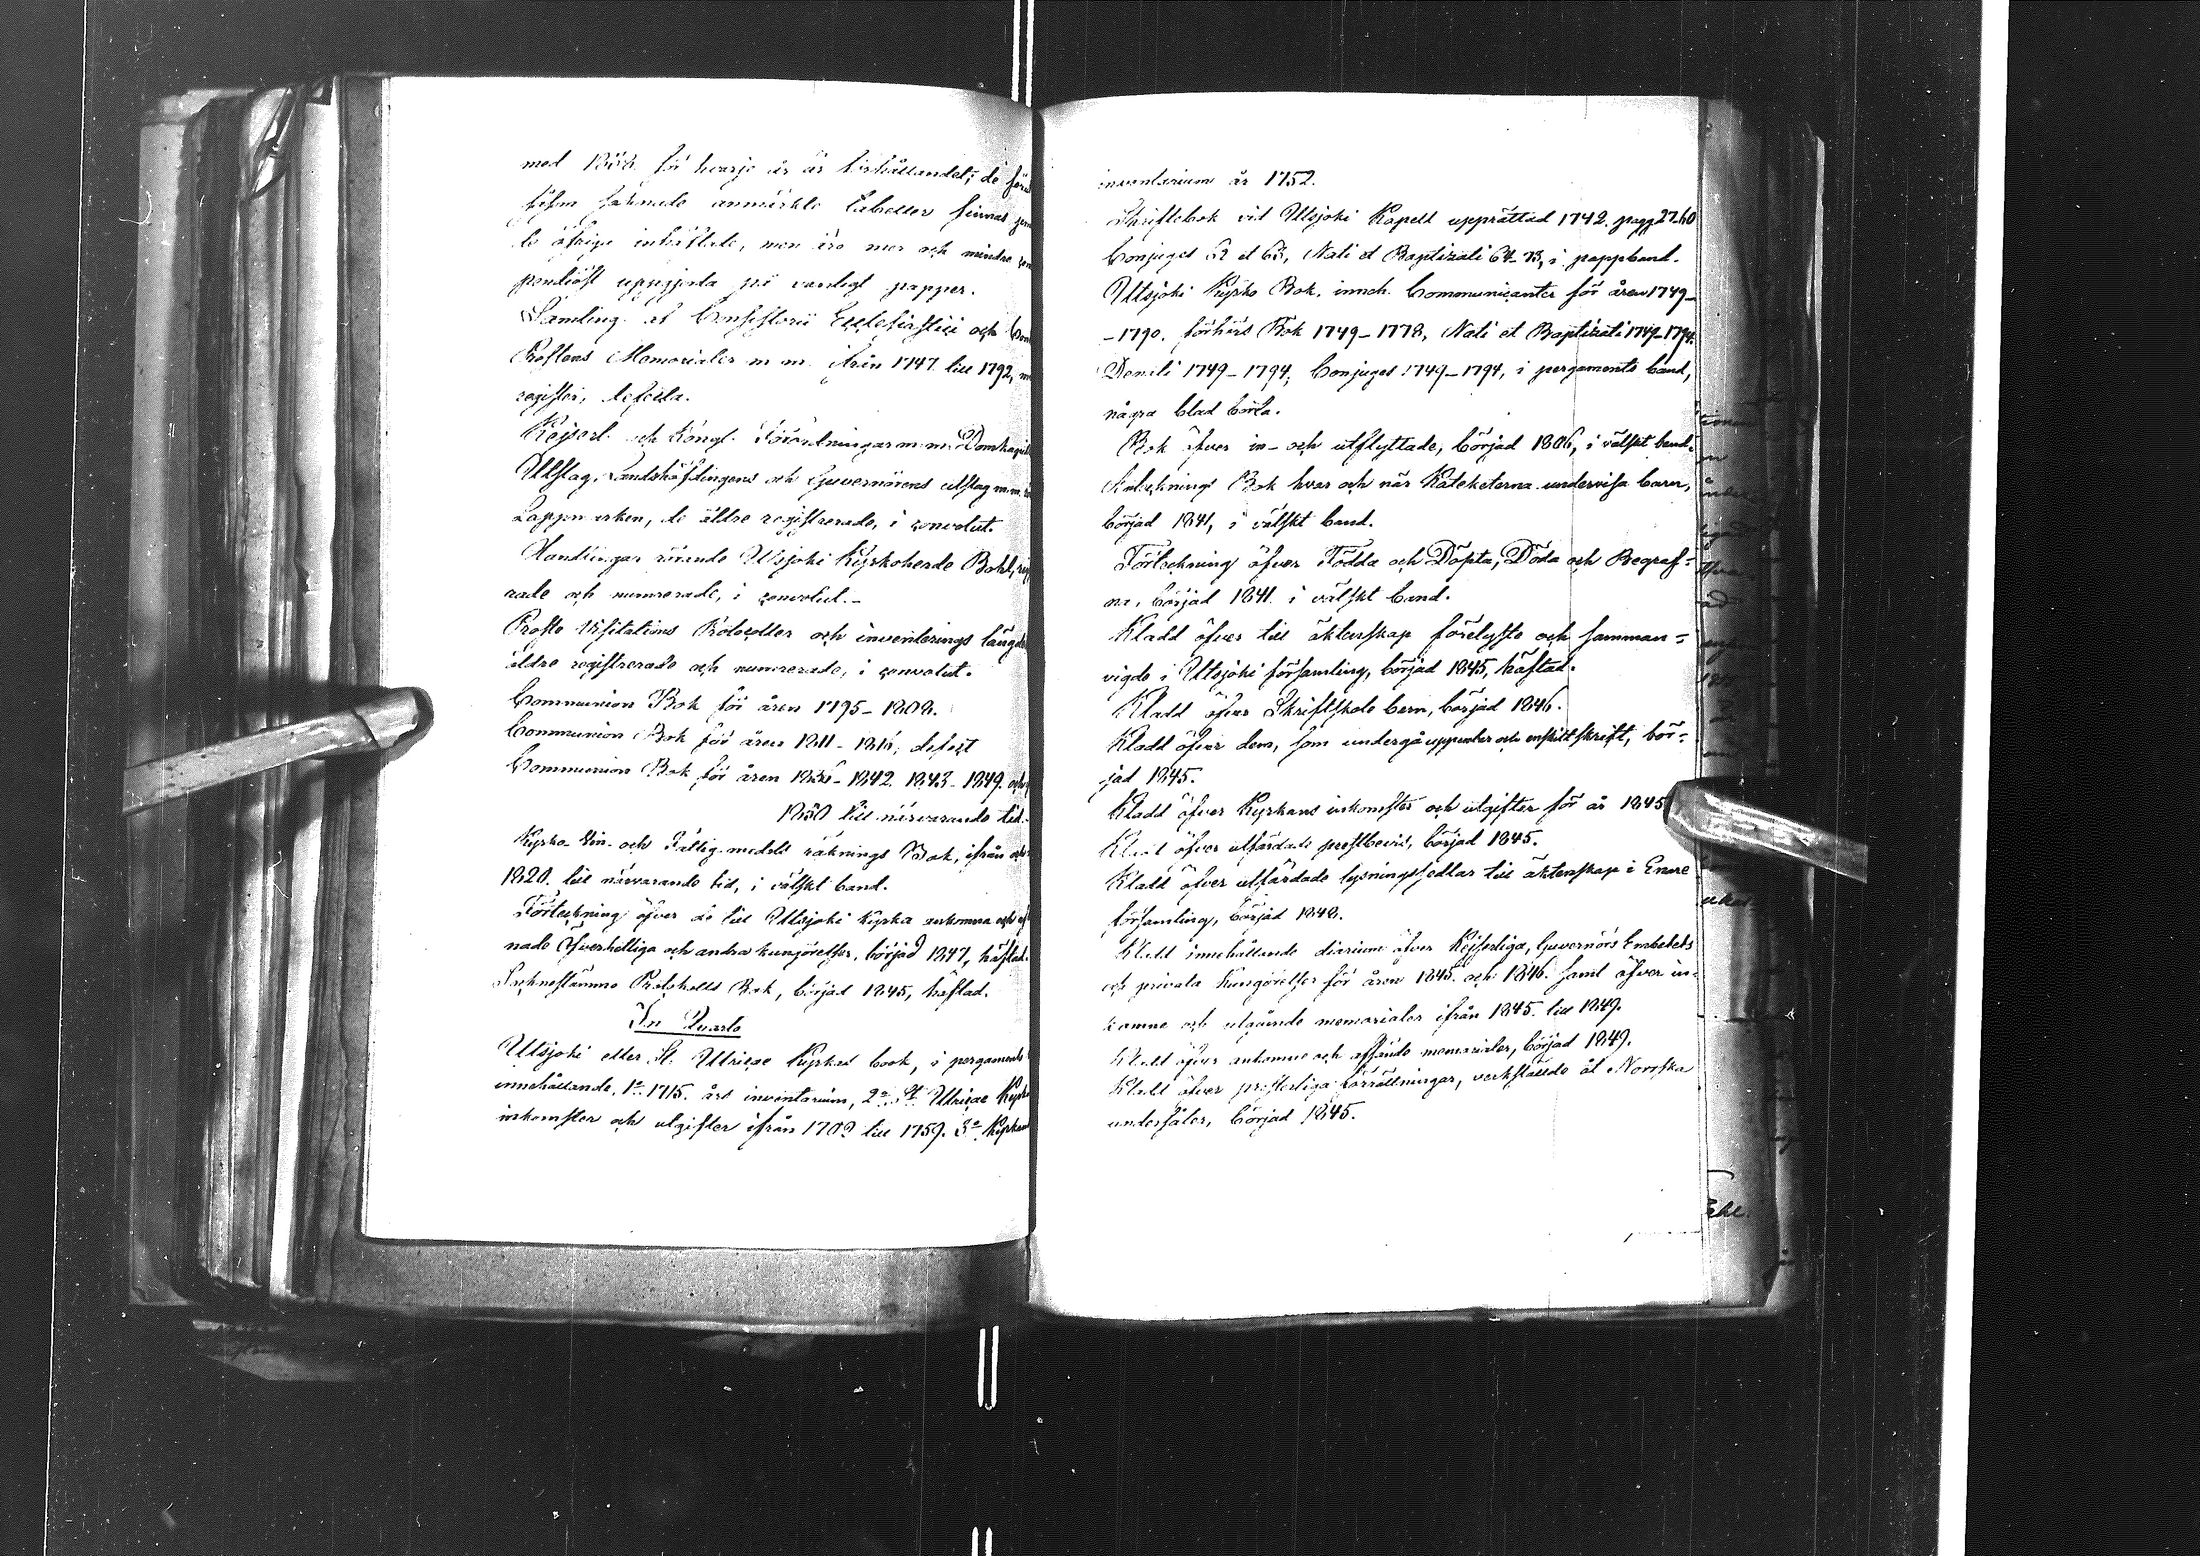 med 1838. för hvarje år är bibehållandet; de
såsom saknade anmärkte tabeller finnas
de öfrige inhäftade, men äro mer och mindre
pendiöst uppgjorda på vanligt papper.
Samling af Consistorii Ecclesiastici och
Prostens Memorialer m m. ifrån 1747 till 1792,
register, defecta.
Kejserl. och Köngl. Förordningar m.m. Domkapit
Utslag, Landshöfdingens och Guvernörens utslag m.m.
Lappmarken, de äldre registrerade, i convolut.
Handlingar rörande Utsjoki Kyrkoherde Bohl,
rade och numrerade, i convolut.-
Prosts Visitations Protocoller och inventerings längd
äldre registrerade och numrerade, i convolut.
Communion Bok för åren 1795-1808.
Communion Bok för åren 1811-1816, defect
Communion Bok för åren 1836-1842. 1843-1849. och
1850 till närvarande tid.
Kyrko- Vin- och Fattig-medels räknings Bok, ifrån och
1820. till närvarande tid, i välskt band.
Förteckning öfver de till Utsjoki kyrka ankomna och
nade Öfverhetliga och andra kungörelser, börjad 1847, häftad.
Sockenstämmo Protokolls Bok, börjad 1845, häftad.
In Quarto
Utsjoki eller St. Ulricae Kyrkas book, i pergaments
innehållande, 1o 1715. års inventarium, 2o St. Ulricae Kyrk
inkomster och utgifter ifrån 1702 till 1759. 3o Kyrkans
inventarium år 1752.
Skriftebok vid Utsjoki Kapell upprättad 1742. pagg. 27-60
Conjuges 62 et 63, Nati et Baptizati 64-73, i pappband.
Utsjoki Kyrko Bok. inneh. Communicanter för åren 1749-
-1790. förhörs Bok 1749-1778, Nati et Baptizati 1749-1794.
Denati 1749-1794, Conjuges 1749-1794, i pergaments band,
några blad börta.
Bok öfver in- och utflyttade, börjad 1806, i välskt band.
Anteknings Bok hvar och när Kateketerna undervisa barn,
börjad 1841, i välskt band.
Förteckning öfver Födda och Döpta, Döda och Begraf=
na, börjad 1841. i välskt band.
Kladd öfver till äktenskap förelyste och samman=
vigde i Utsjoki församling, börjad 1845, häftad.
Kladd öfver Skriftskole barn, börjad 1846.
Kladd öfver dem, som undergå uppenbar och enskilt skrift, bör=
jad 1845.
Kladd öfver Kyrkans inkomster och utgifter för år 1845
Kladd öfver utfärdade prestbevis, börjad 1845.
Kladd öfver utfärdade lysningssedlar till äktenskap i Enare
församling, börjad 1848.
Kladd innehållande diarium öfver Kejserliga, Guvernörs Embetets
och privata Kungörelser för åren 1845 och 1846. samt öfver in=
komne och utgående memorialer ifrån 1845. till 1849.
Kladd öfver ankomne och afsände memorialer, börjad 1849.
Kladd öfver presterliga förrättningar, verkställde åt Norska
undersåter, börjad 1845.